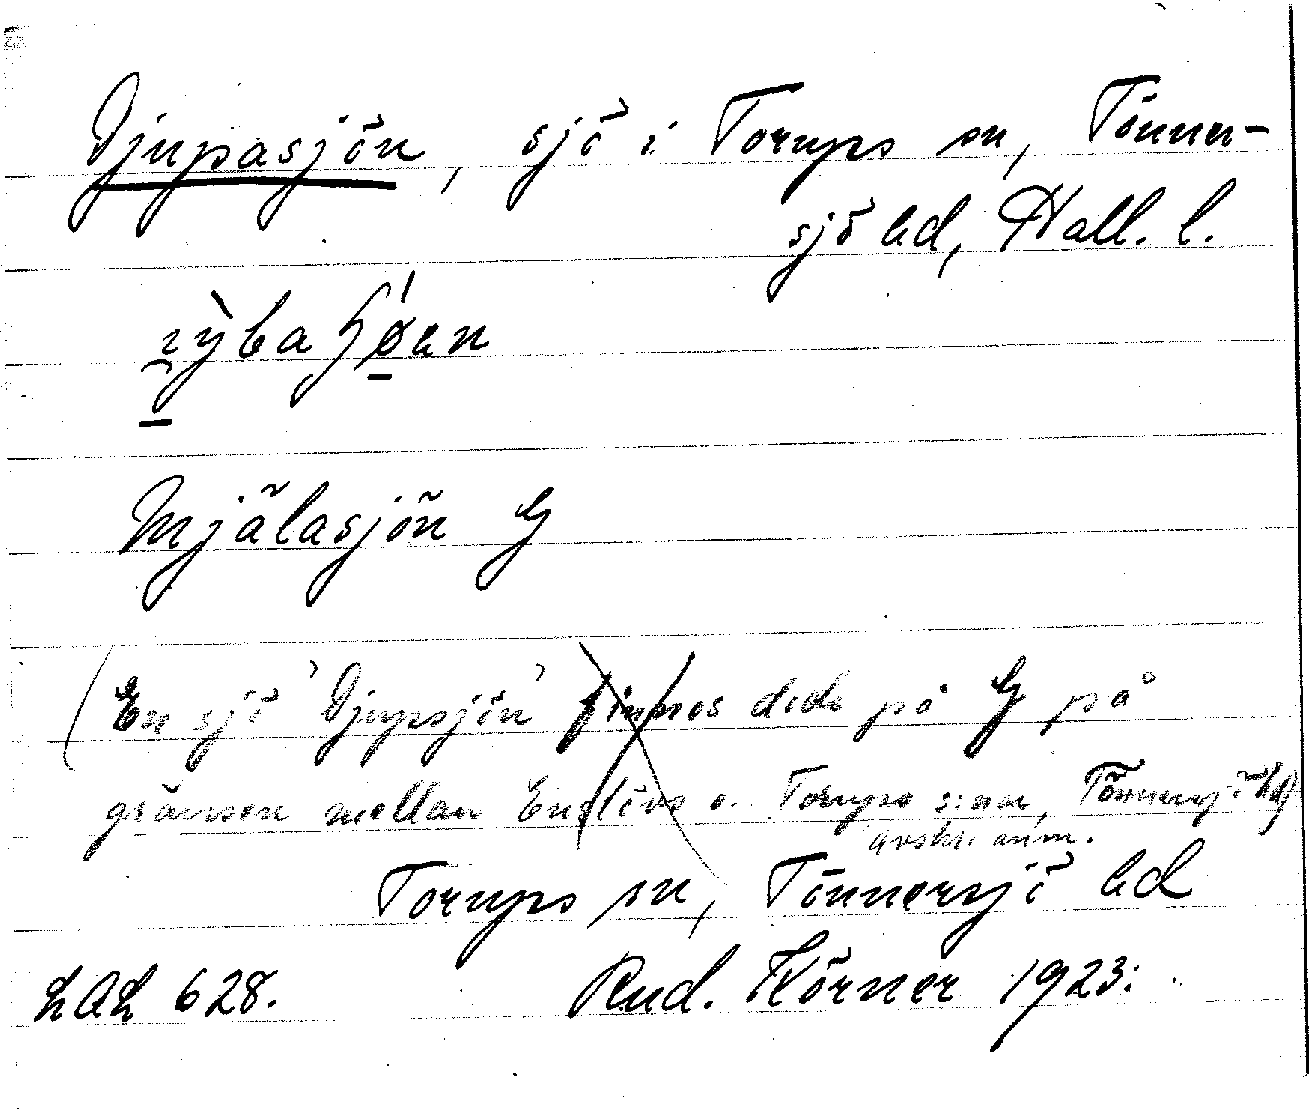 Djupasjön, sjö i Torups sn, Tönner-
sjö hd, Hall. l.
Mjälasjön G
(En sjö 'Djupsjön' finnes dels på G på
gränsen mellan Enslövs o. Torups s:nar, Tönnersjö hd)
avskr. anm.
Torups sn, Tönnersjö hd
LAL 628. Rud. Körner 1923.